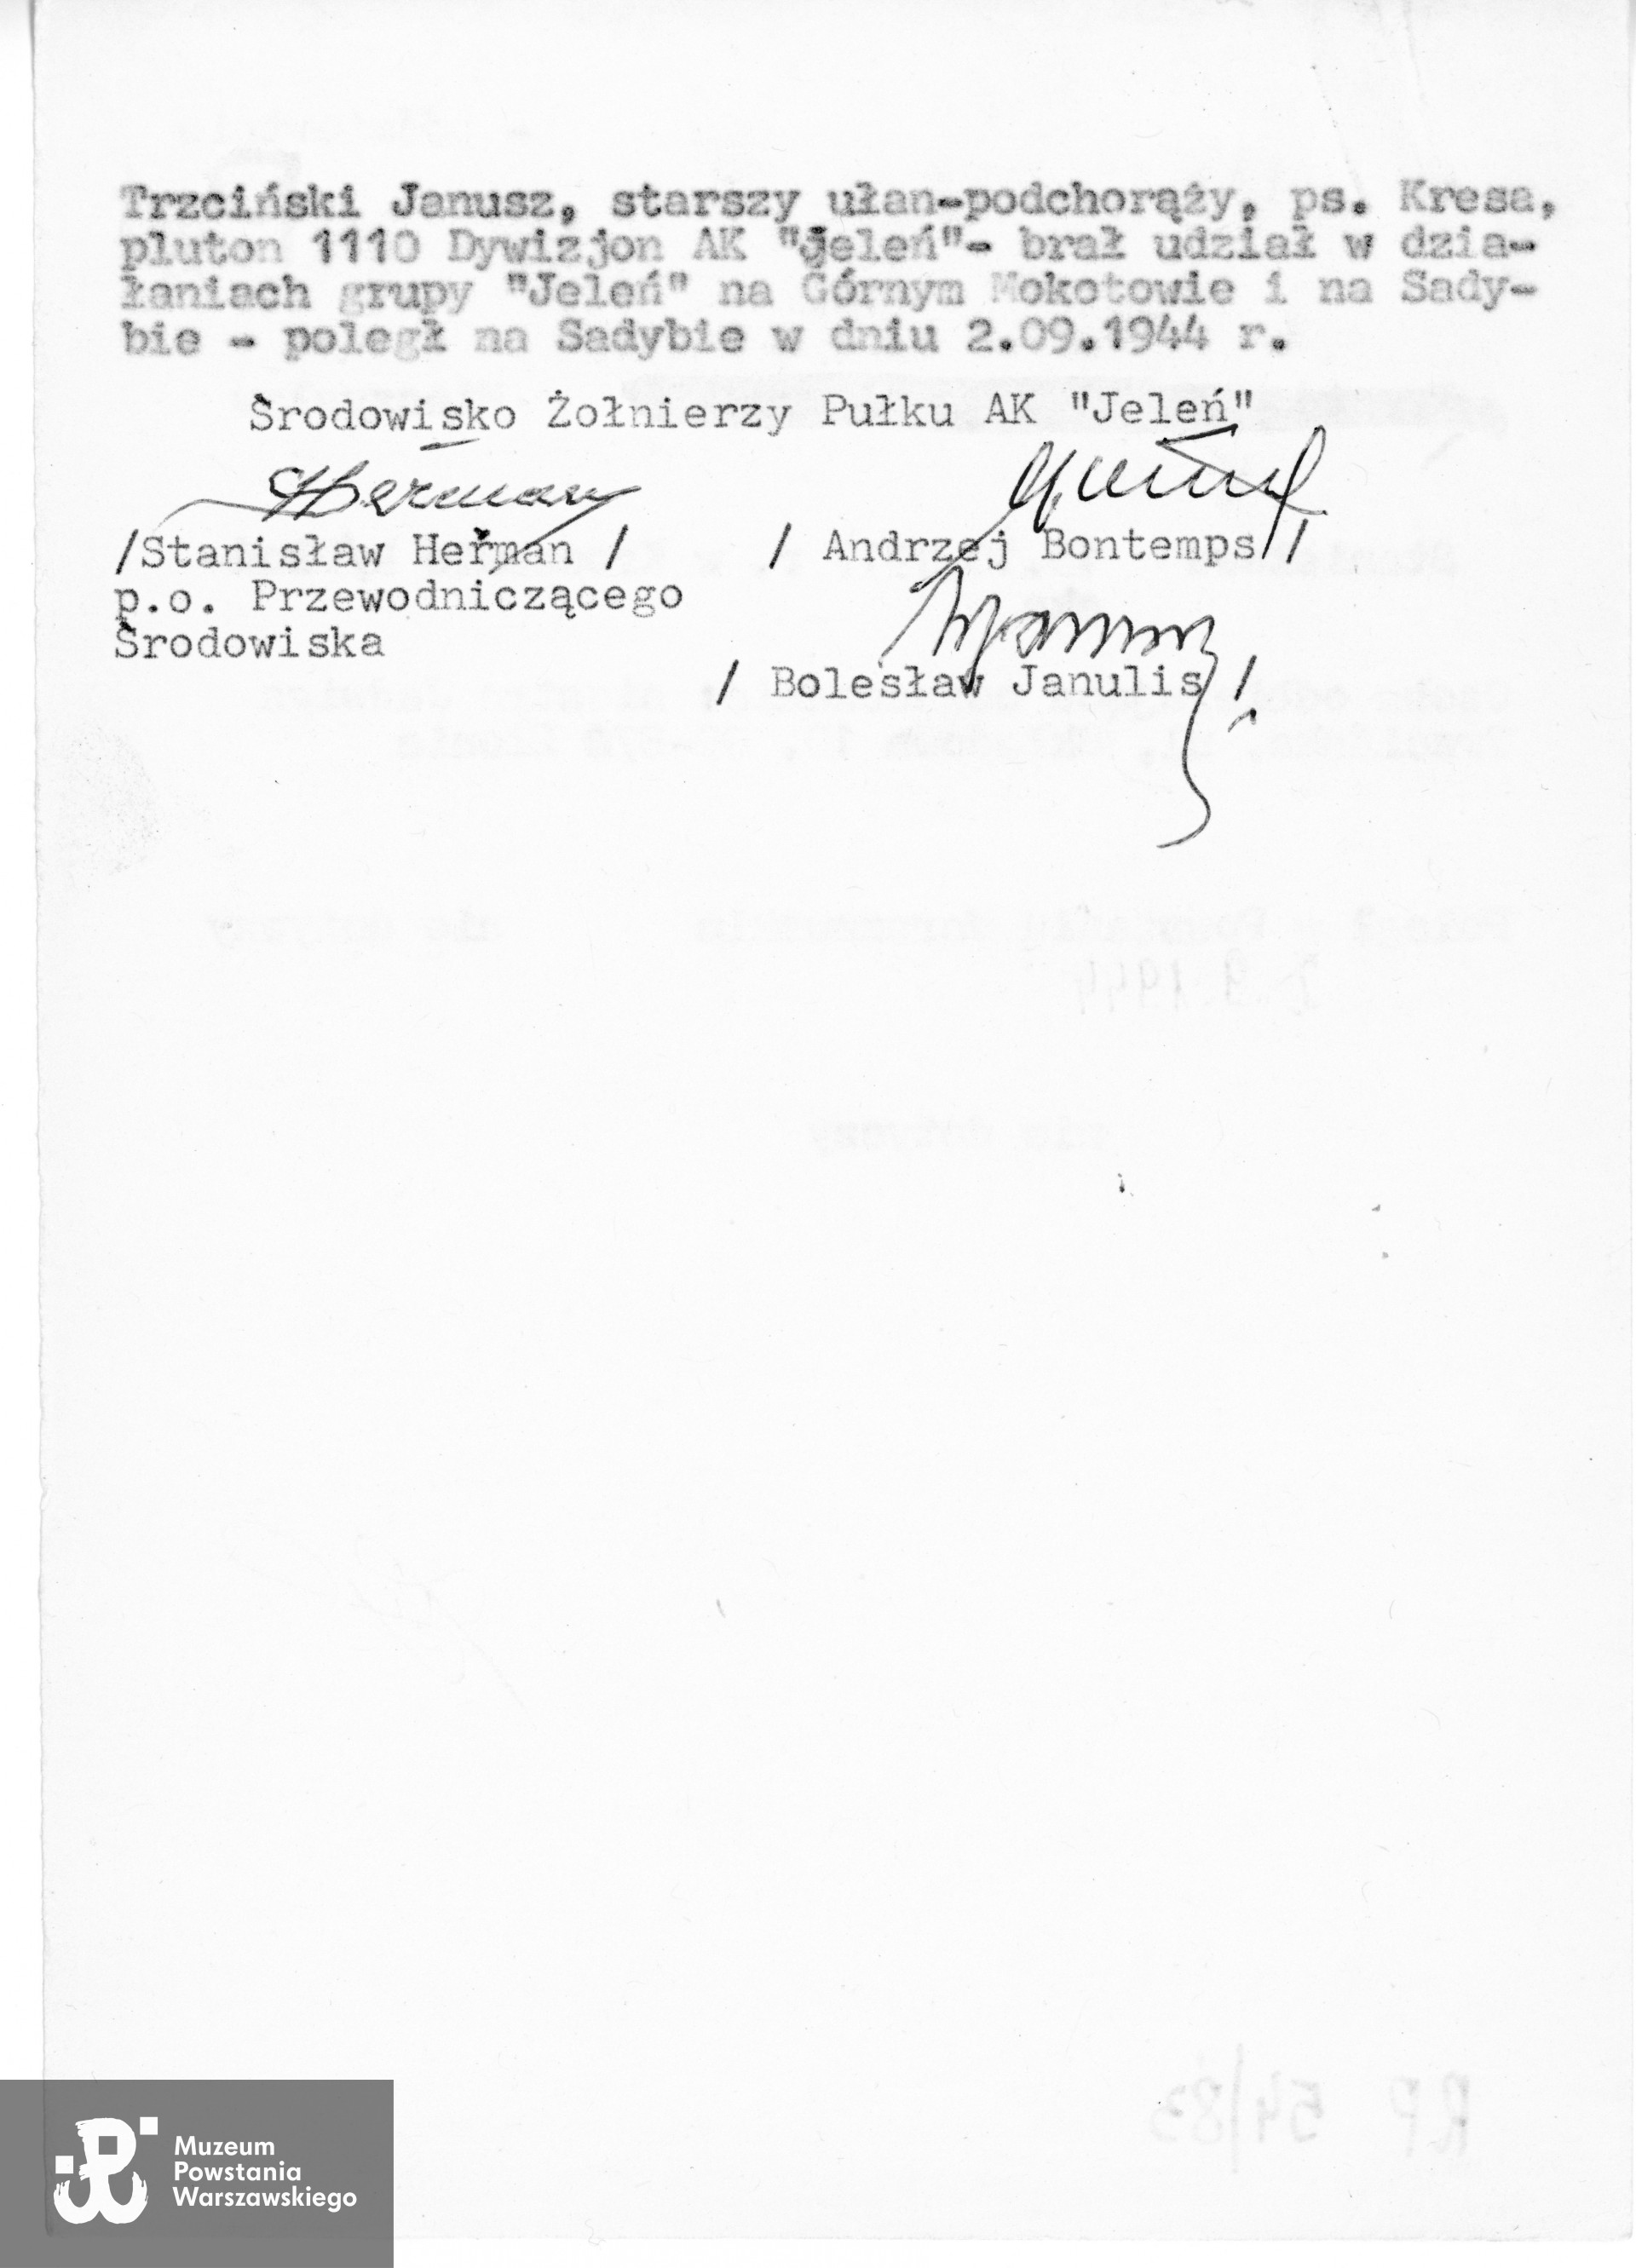 Trzciński Janusz, starszy ułan-podchorąży, ps. Kresa,
pluton 1110 Dywizjon AK "Jeleń"- brał udział w dzia-
łaniach grupy "Jeleń" na Górnym Mokotowie i na Sady-
bie - poległ na Sadybie w dniu 2.09.1944 r.
Środowisko Żołnierzy Pułku AK "Jeleń"
Herman
/Stanisław Herman / / Andrzej Bontemps /
p.o. Przewodniczącego
Środowiska
/ Bolesław Janulis /
RP 54/83
Muzeum
Powstania
Warszawskiego